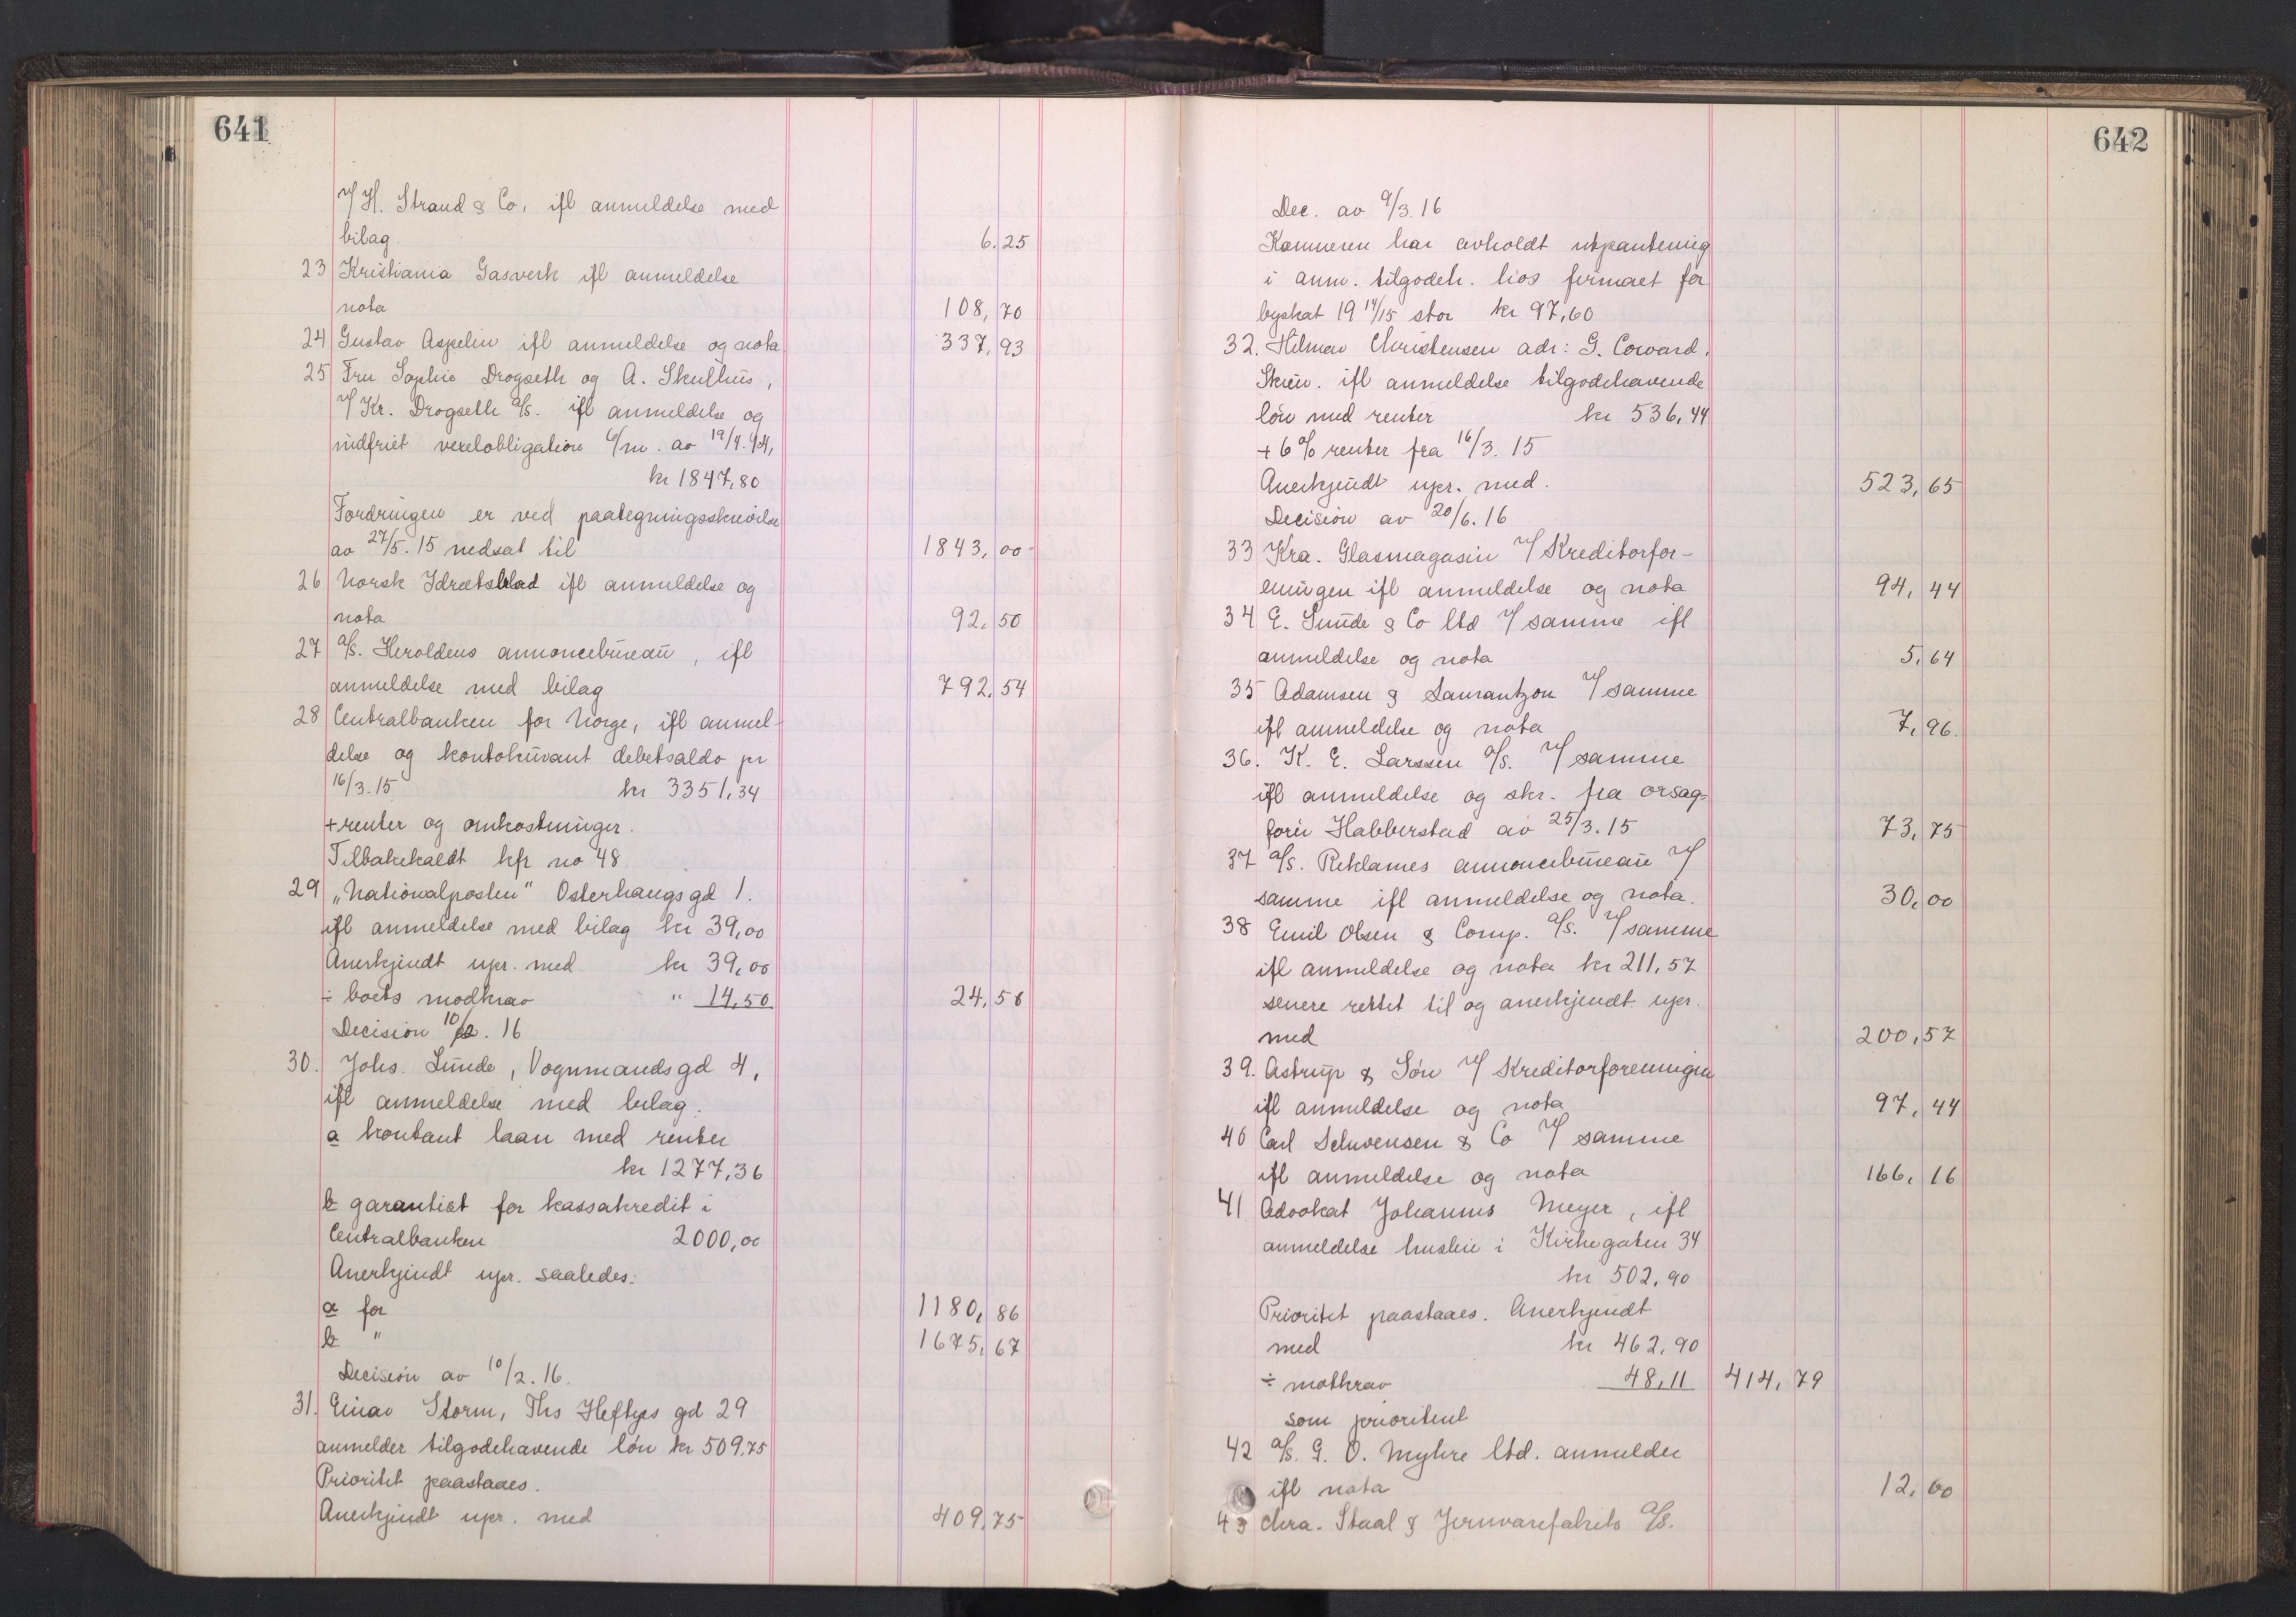 641
v/ H. Strand & Co, ifl anmeldelse med
bilag 6,25
23 Kristiania Gasverk ifl anmeldelse
nota 108,70
24 Gustav Aspelin ifl anmeldelse og nota 337,93
25 Fru Sophie Drogseth og A. Skulhus,
v/ Kr. Drogseth a/s. ifl anmeldelse og
indfriet vexelobligation 6/m. av 19/9.14,
kr 1847,80
Fordringen er ved paategningsskrivelse
av 27/5.15 nedsat til 1843,00
26 Norsk Idrætsblad ifl anmeldelse og
nota 92,50
27 a/s. Heroldens annoncebureau, ifl
anmeldelse med bilag 792,54
28 Centralbanken for Norge, ifl anmel-
delse og kontokurant debetsaldo pr
16/3.15 kr 3351,34
+ renter og omkostninger.
Tilbakekaldt kfr no 48
29 „Nationalposten" Osterhaugs gd 1.
ifl anmeldelse med bilag kr 39,00
Anerkjendt upr. med kr 39,00
÷ boets modkrav " 14,50 24,50
Decision 10/2.16
30. Johs. Lunde, Vognmandsgd 4,
ifl anmeldelse med bilag.
a kontant laan med renter
kr 1277,36
b garantist for kassakredit i
Centralbanken 2000,00
Anerkjendt upr. saaledes:
a for 1180,86
b " 1675,67
Decision av 10/2.16.
31. Einar Storm, Ths Heftyes gd 29
anmelder tilgodehavende løn kr 509,75
Prioritet paastaaes.
Anerkjendt upr. med 409,75
642
Dec. av 9/3.16
Kæmneren har avholdt utpantning
i anm. tilgodeh. hos firmaet for
byskat 19 14/15 stor kr 97,60
32. Hilmar Christensen adr: G. Coward,
Skien. ifl anmeldelse tilgodehavende
løn med renter kr 536,44
+ 6% renter fra 16/3.15
Anerkjendt upr. med. 523,65
Decision av 20/6.16
33 Kra. Glasmagasin v/ Kreditorfor-
eningen ifl anmeldelse og nota 94,44
34 E. Sunde & Co ltd v/ samme ifl
anmeldelse og nota 5,64
35 Adamsen & v/ samme
ifl anmeldelse og nota 7,96
36. K. E. Larssen a/s. v/ samme
ifl anmeldelse og skr. fra orsag-
forer Habberstad av 25/3.15 73,75
37 a/s. Reklames annoncebureau v/
samme ifl anmeldelse og nota. 30,00
38 Emil Olsen & Comp. a/s. v/ samme
ifl anmeldelse og nota kr 211,57
senere rettet til og anerkjendt upr.
med 200,57
39. Astrup & Søn v/ Kreditorforeningen
ifl anmeldelse og nota 97,44
40 Carl & Co v/ samme
ifl anmeldelse og nota 166,16
41 Advokat Johannes Meyer, ifl
anmeldelse husleie i Kirkegaten 34
kr 502,90
Prioritet paastaaes. Anerkjendt
med kr 462,90
÷ motkrav 48,11 414,79
som prioritert
42 a/s. G. O. Myhre ltd. anmelder
ifl nota 12,00
43 Chra. Staal & Jernvarefabrik a/s.